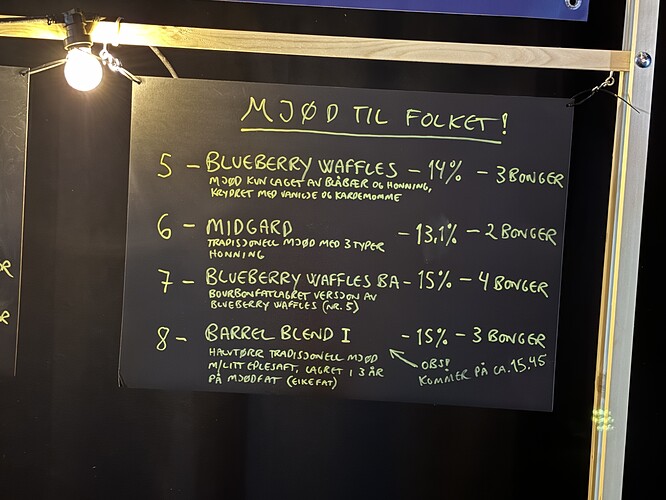 MJØD TIL FOLKET!
5 - BLUEBERRY WAFFLES - 14% - 3 BONGER
MJØD KUN LAGET AV BLÅBÆR OG HONNING,
KRYDRET MED VANILJE OG KARDEMOMME
6 - MIDGARD - 13,1% - 2 BONGER
TRADISJONELL MJØD MED 3 TYPER
HONNING
7 - BLUEBERRY WAFFLES BA - 15% - 4 BONGER
BOURBONFATLAGRET VERSJON AV
BLUEBERRY WAFFLES (NR. 5)
8 - BARREL BLEND I - 15% - 3 BONGER
HALVTØRR TRADISJONELL MJØD
M/LITT EPLESAFT, LAGRET I 3 ÅR
PÅ MJØDFAT (EIKEFAT)
OBS!
KOMMER PÅ CA. 15.45